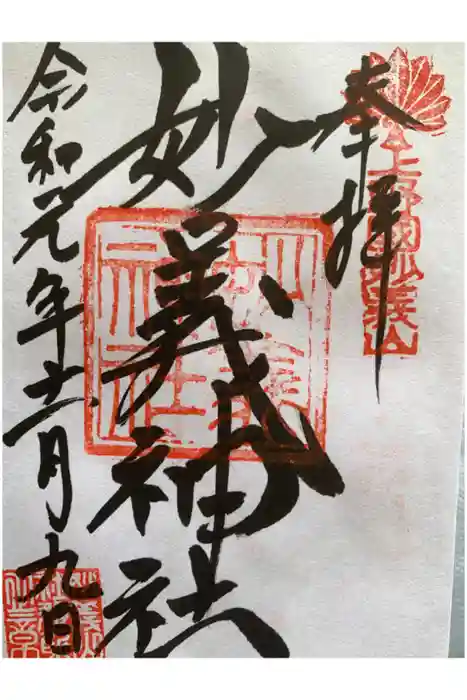 奉拝
上野國妙義山
妙義神社
令和元年十一月九日